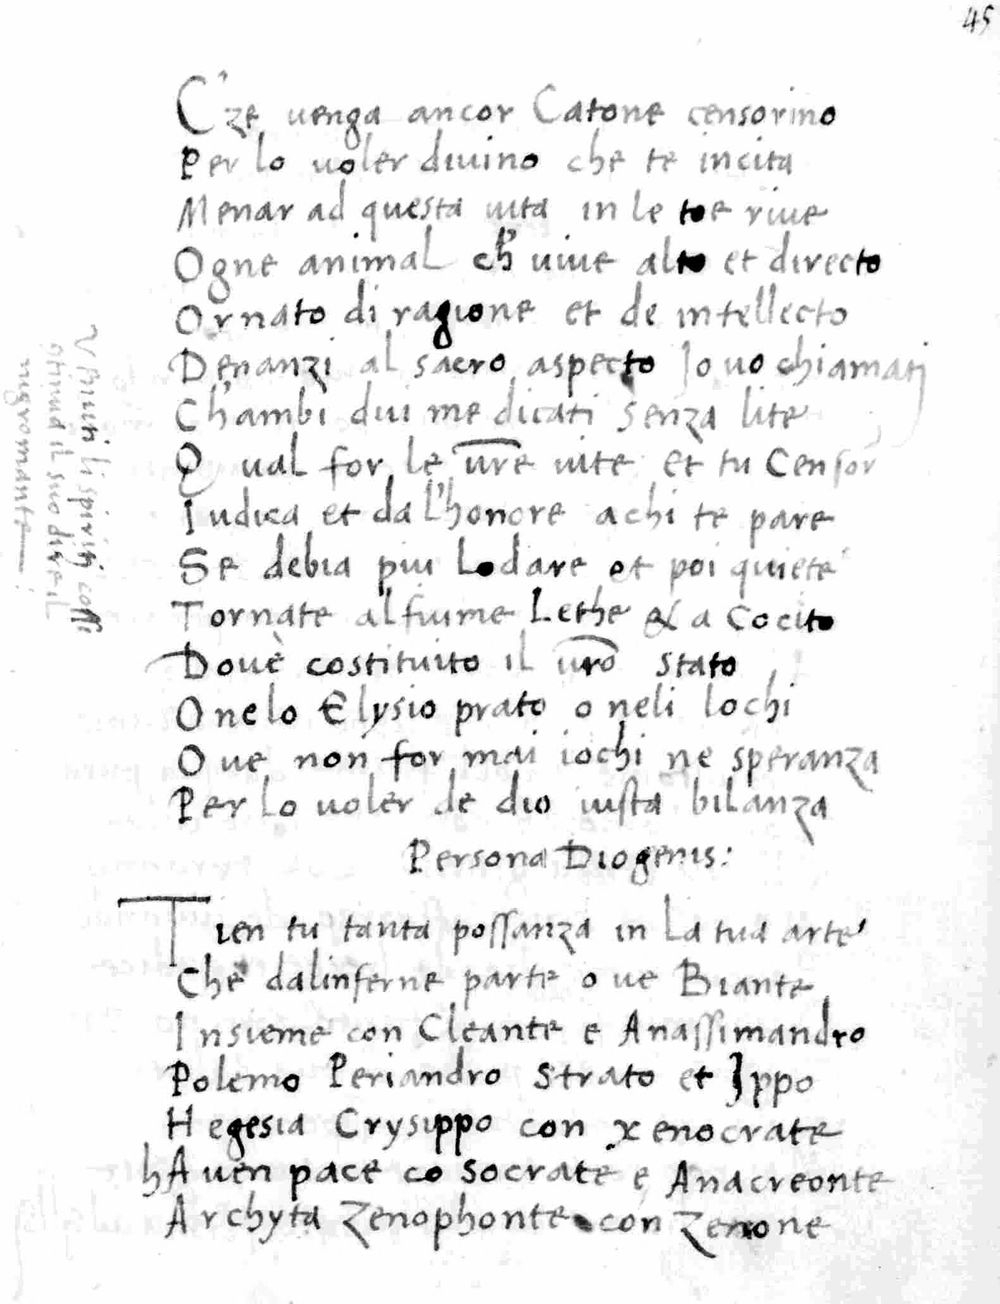 45
C'ze uenga ancor Catone censorino
Per lo uoler diuino che te incita
Menar ad questa uita in le toe riue
Ogne animal ch' uiue alto et directo
Ornato di ragione et de intellecto
Denanzi al sacro aspecto Io uo chiamati
Ch'ambi dui me dicati senza lite
Qual for le ure uite et tu Censor
Iudica et da l'honore a chi te pare
Se debia piu lodare et poi quiete
Tornate al fiume Lethe & a Cocito
Douè costituito il uro stato
O nelo Elysio prato o neli lochi
Oue non for mai iochi ne speranza
Per lo uoler de dio iusta bilanza
Venuti li spiriti cossi
seguita il suo dire il
nigromante
Persona Diogenis:
Tien tu tanta possanza in la tua arte
Che dalinferne parte oue Biante
Insieme con Cleante e Anassimandro
Polemo Periandro Strato et Ippo
Hegesia Crysippo con xenocrate
hAuen pace co Socrate e Anacreonte
Archyta Zenophonte con Zenone